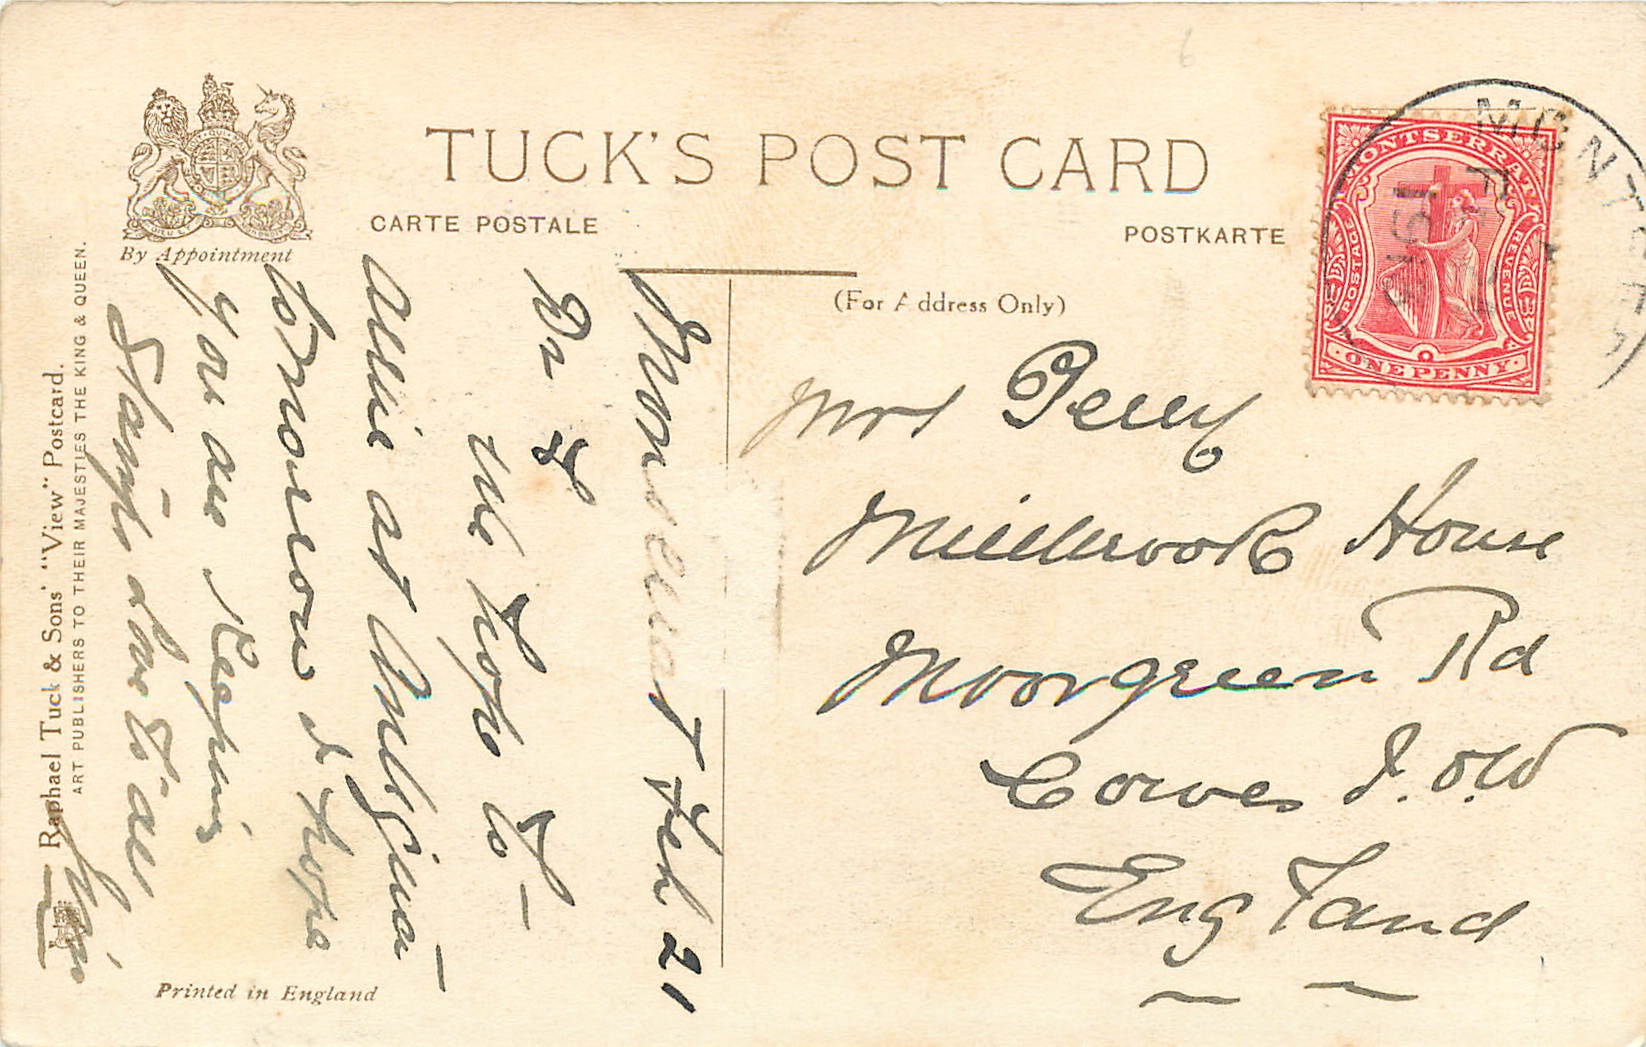 TUCK'S POST CARD
CARTE POSTALE
POSTKARTE
By Appointment
(For Address Only)
MONTSERRAT
POSTAGE
REVENUE
ONE PENNY
MONTSERRAT
Montserrat Feb 21
We hope to
arrive at Antigua
tomorrow I hope
you are keeping
Love to all
Mrs Perry
Millbrook House
Moorgreen Rd
Cowes I. o. W
England
Raphael Tuck & Sons' "View" Postcard.
ART PUBLISHERS TO THEIR MAJESTIES THE KING & QUEEN.
Printed in England